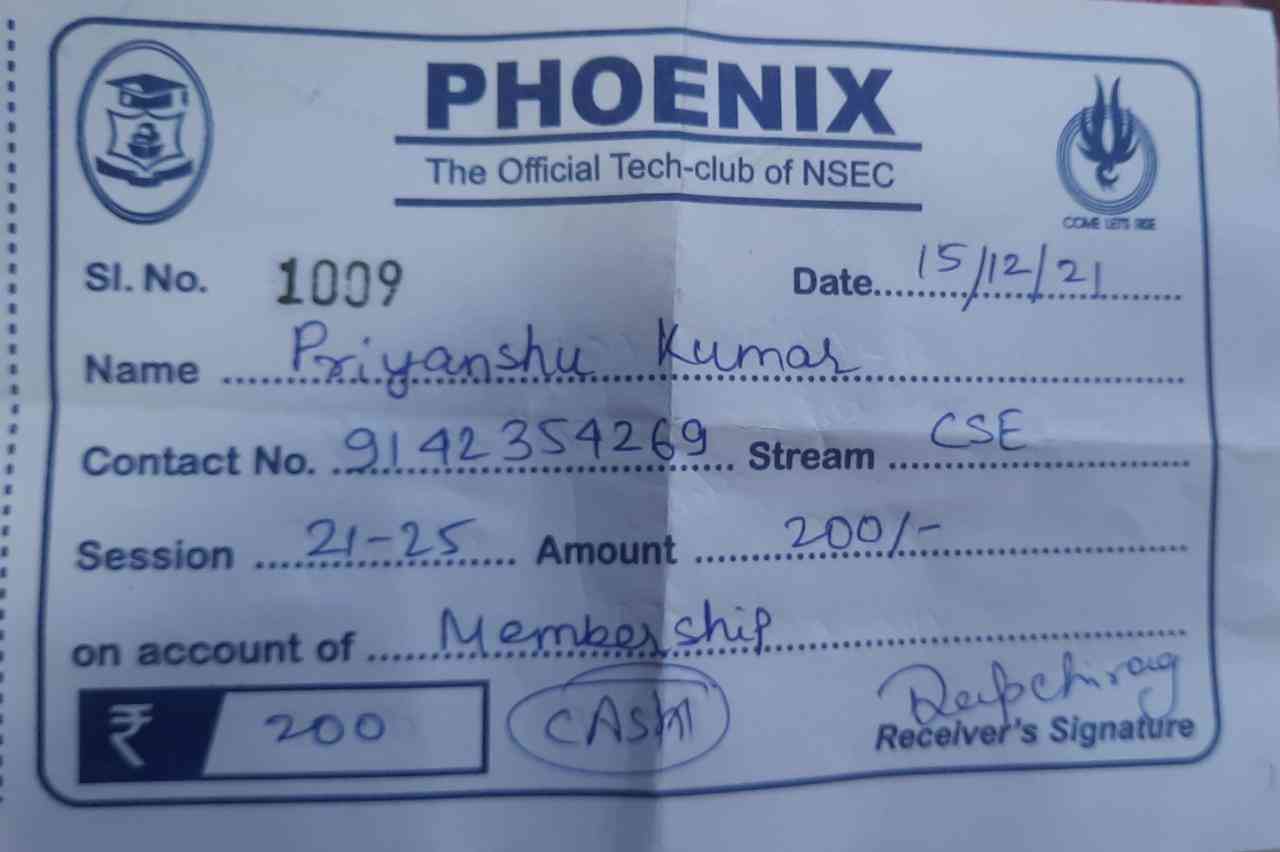 PHOENIX
The Official Tech-club of NSEC
COME LETS RISE
Sl. No. 1009 Date 15/12/21
Name Priyanshu Kumar
Contact No. 9142354269 Stream CSE
Session 21-25 Amount 200/-
on account of Membership
₹ 200 CASH
Receiver's Signature